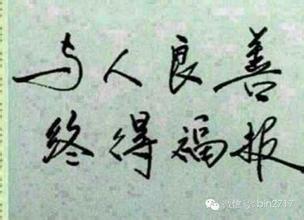 与人良善
终得福报
微信号: bin2717